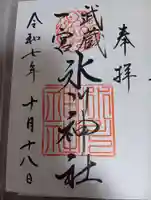 奉拝
武蔵
一宮
氷川神社
令和七年
十月十八日